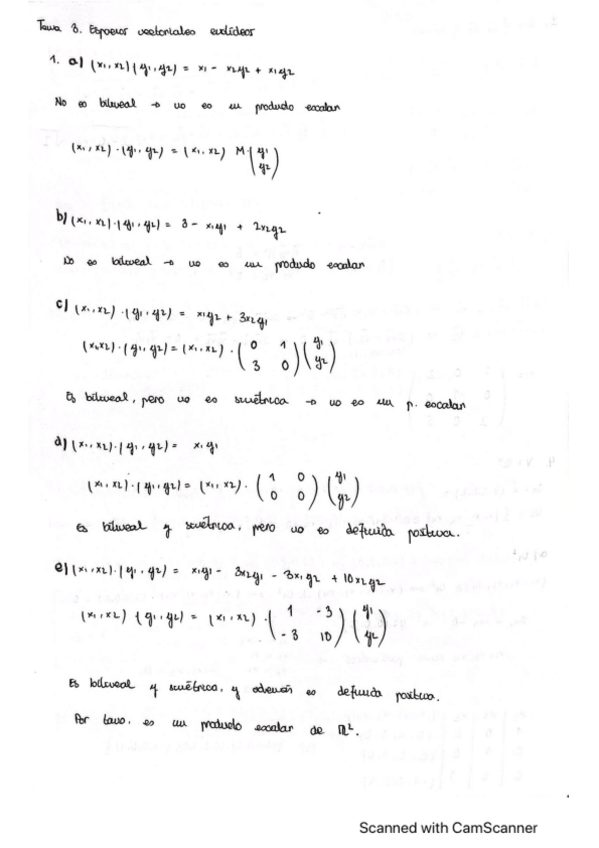 Tema 3. Espacios vectoriales euclídeos
1. a) (x1, x2)(y1, y2) = x1 - x2y2 + x1y2
No es bilineal → no es un producto escalar
(x1, x2) · (y1, y2) = (x1, x2) M · (y1
y2)
b) (x1, x2) · (y1, y2) = 3 - x1y1 + 2x2y2
No es bilineal → no es un producto escalar
c) (x1, x2) · (y1, y2) = x1y2 + 3x2y1
(x1, x2) · (y1, y2) = (x1, x2) · (0 1) (y1
3 0) y2)
Es bilineal, pero no es simétrica → no es un p. escalar
d) (x1, x2) · (y1, y2) = x1y1
(x1, x2) · (y1, y2) = (x1, x2) · (1 0) (y1
0 0) y2)
Es bilineal y simétrica, pero no es definida positiva.
e) (x1, x2) · (y1, y2) = x1y1 - 3x2y1 - 3x1y2 + 10x2y2
(x1, x2) · (y1, y2) = (x1, x2) · (1 -3) (y1
-3 10) y2)
Es bilineal y simétrica, y además es definida positiva.
Por tanto, es un producto escalar de ℝ².
Scanned with CamScanner